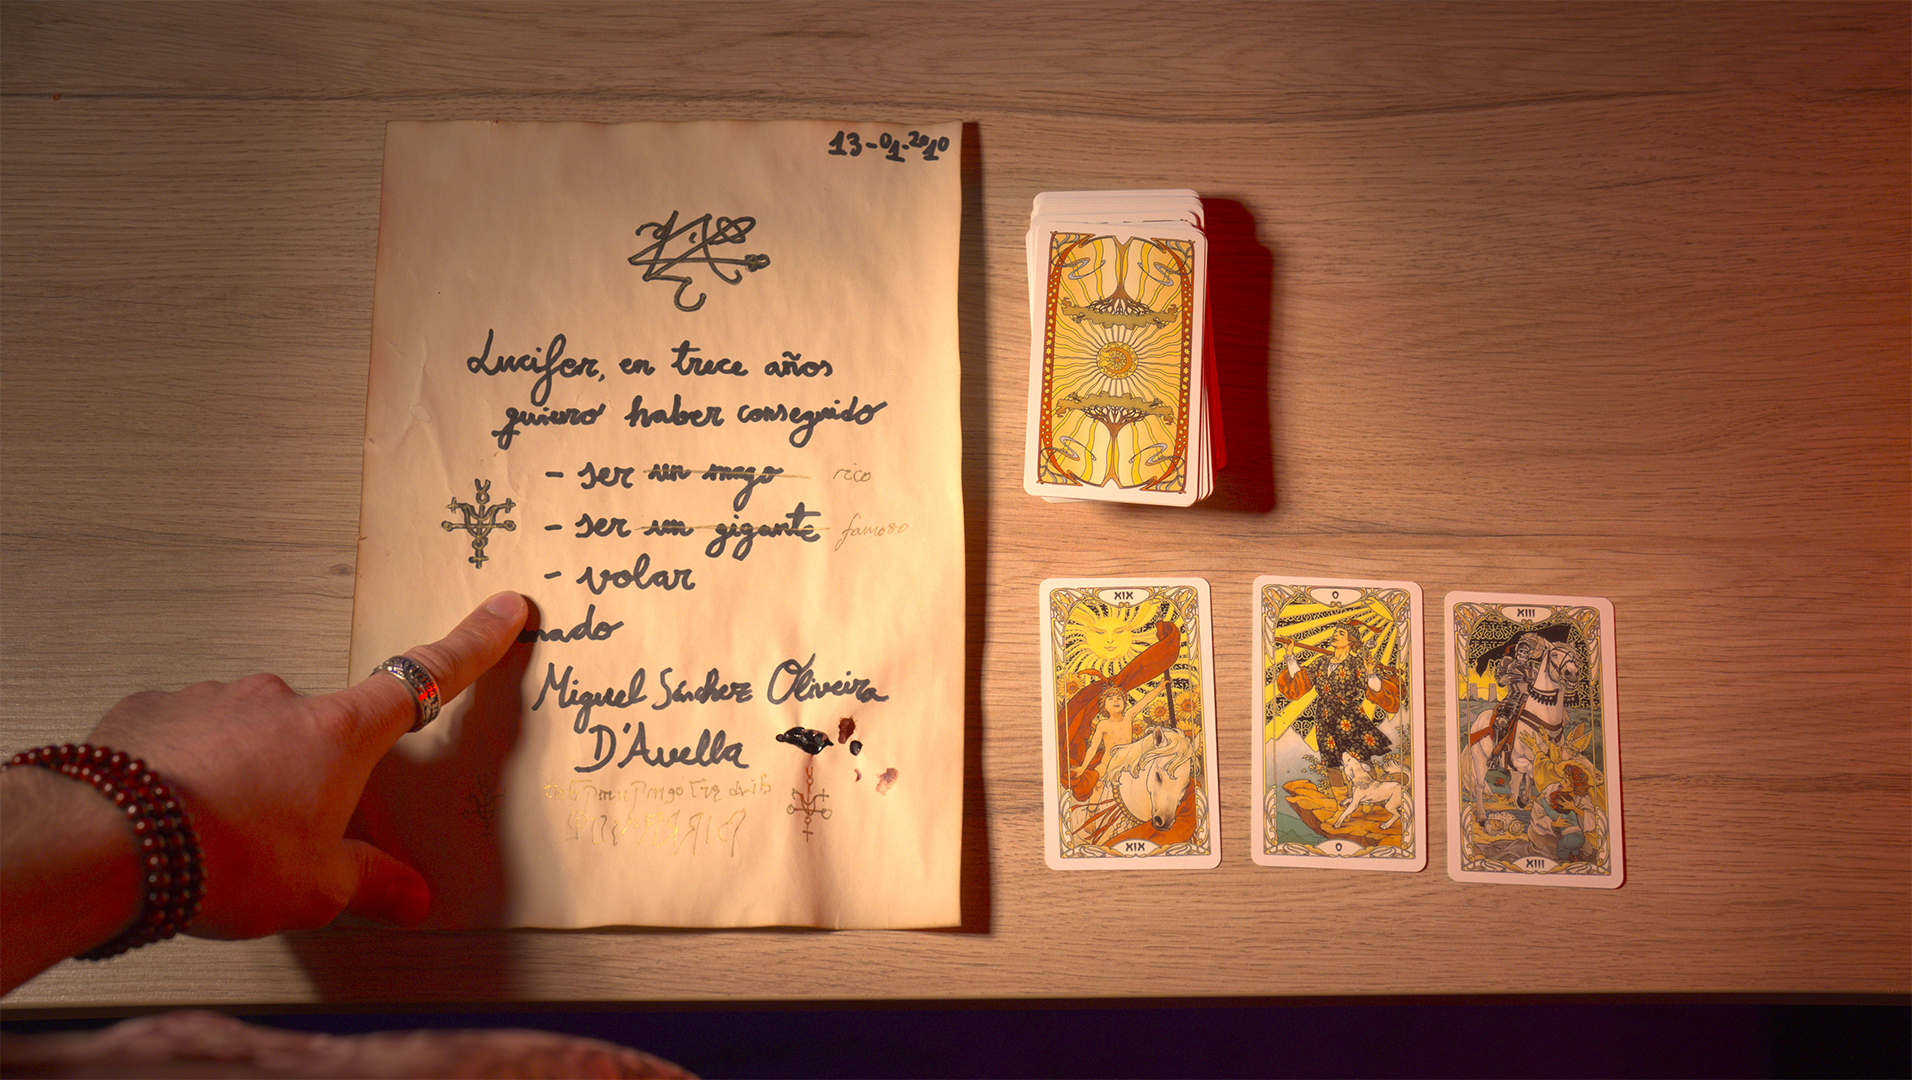 13-01-2010
Lucifer, en trece años
quiero haber conseguido
- ser un mago rico
- ser un gigante famoso
- volar
mado
Miguel Sánchez Oliveira
D'Avella
XIX
XIX
0
0
XIII
XIII